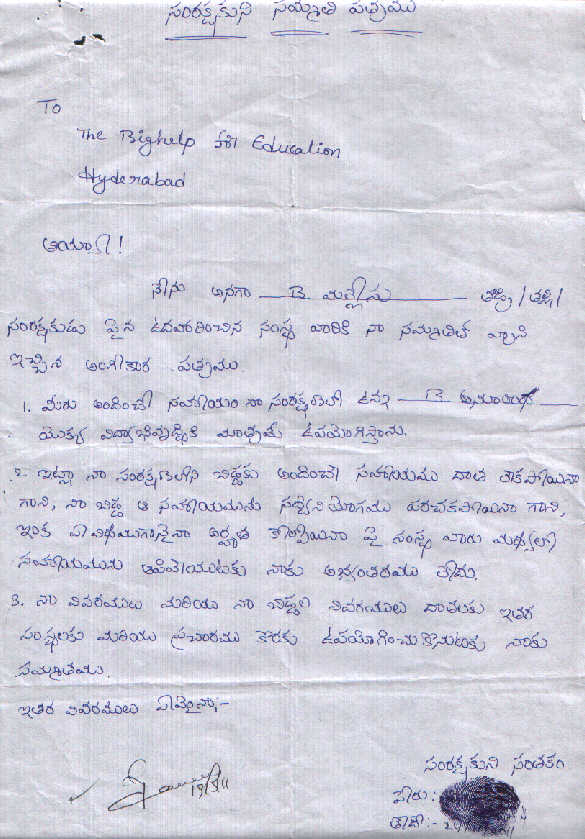 సంరక్షకుని సమ్మతి పత్రము
To
The Bighelp for Education
Hyderabad
అయ్యా!
నేను అనగా B. మల్లేషు తండ్రి/తల్లి/
సంరక్షకుడు పైన ఉదహరించిన సంస్థ వారికి నా సమ్మతితో వ్రాసి
ఇచ్చిన అంగీకార పత్రము.
1. మీరు అందించే సహాయం నా సంరక్షణలో ఉన్న B.
యొక్క విద్యాభివృద్ధికి మాత్రమే ఉపయోగిస్తాను.
2. ఇట్లా నా సంరక్షణలోని బిడ్డకు అందించే సహాయము దాత లేకపోయినా
గాని, నా బిడ్డ ఆ సహాయమును సద్వినియోగము పరచకపోయినా గాని,
ఇంక ఏ విధముగానైనా అర్హత కోల్పోయినా పై సంస్థ వారు మధ్యలో
సహాయమును ఆపివేయుటకు నాకు అభ్యంతరము లేదు.
3. నా వివరములు మరియు నా బిడ్డల వివరములు దాతలకు ఇతర
సంస్థలకు మరియు ప్రచారము కొరకు ఉపయోగించుకొనుటకు నాకు
సమ్మతము.
ఇతర వివరములు ఏమైనా:-
సంరక్షకుని సంతకం
పేరు:
తేది:-